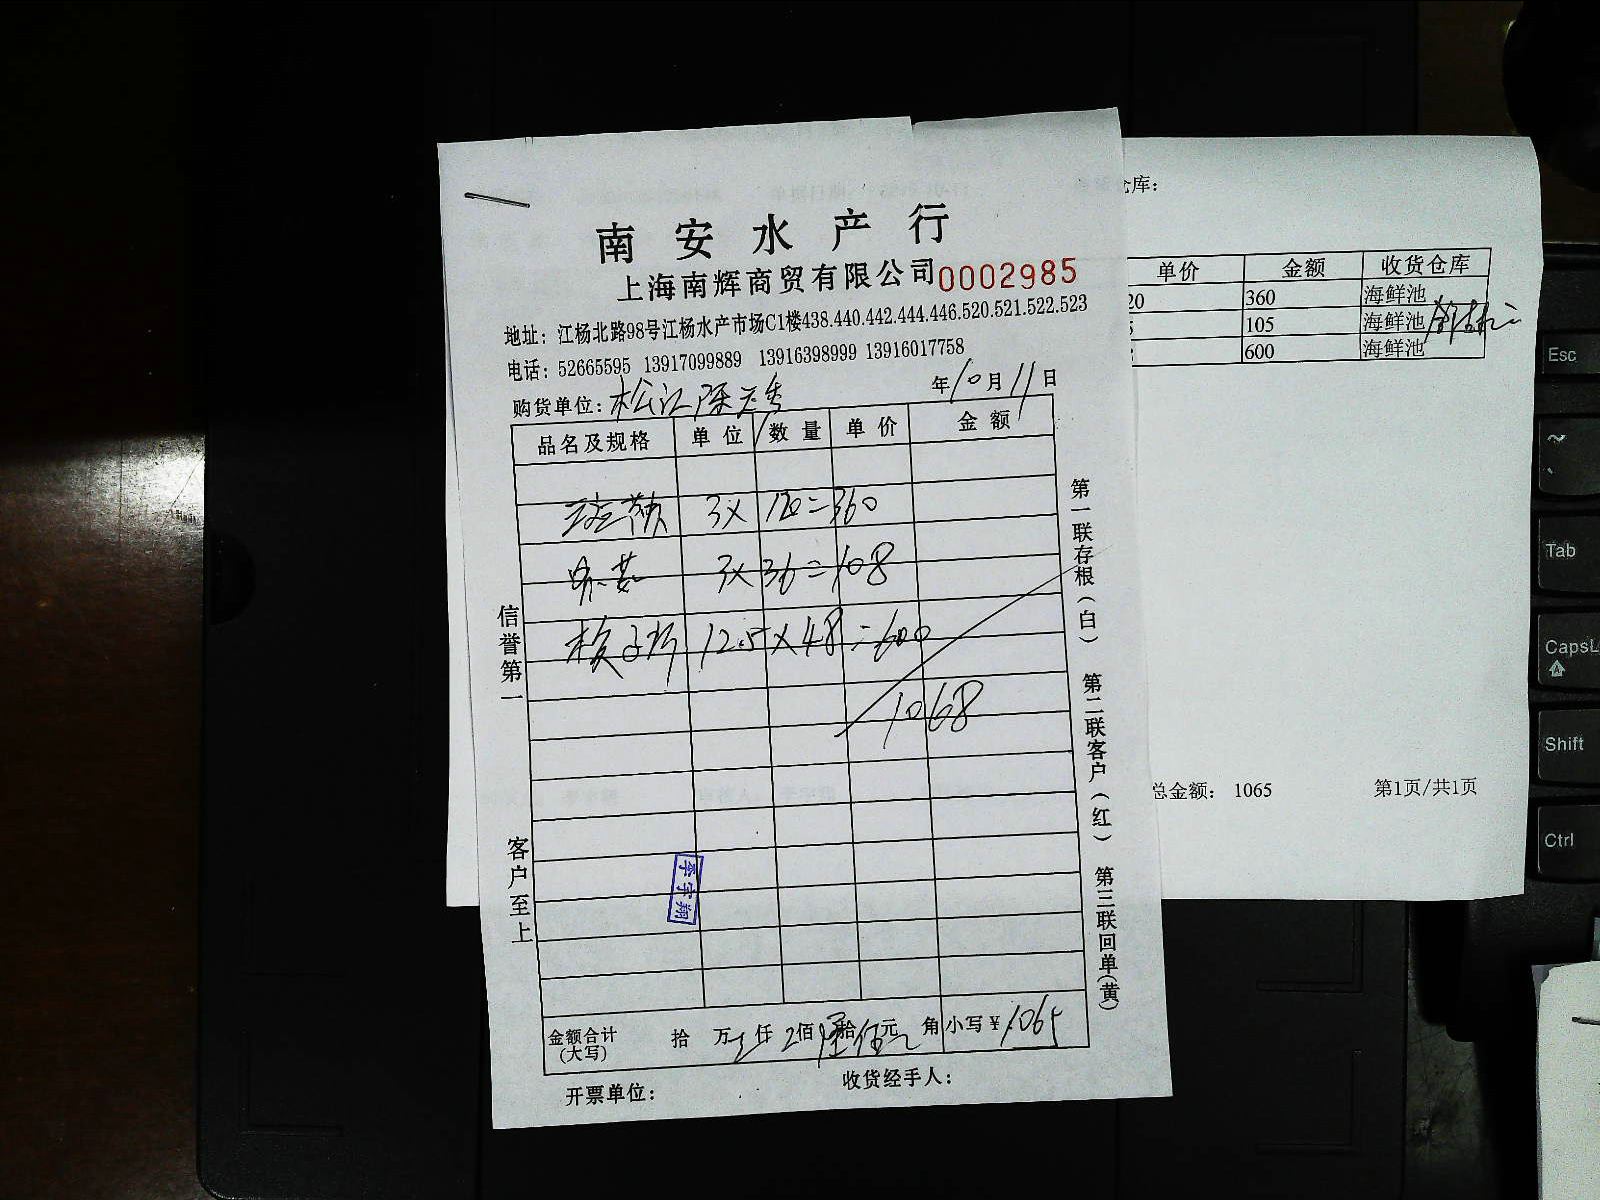 南安水产行
上海南辉商贸有限公司 0002985
地址：江杨北路98号江杨水产市场C1楼438.440.442.444.446.520.521.522.523
电话：52665595 13917099889 13916398999 13916017758
购货单位：松江陈 年10月11日
品名及规格 单位 数量 单价 金额
3× 120=360
3×36=108
12.5×48=600
1068
信誉第一
客户至上
第一联存根（白） 第二联客户（红） 第三联回单（黄）
李宇翔
金额合计 拾 万 仟 佰 拾 元 角 小写￥1065
（大写）
开票单位： 收货经手人：
仓库：
单价 金额 收货仓库
20 360 海鲜池
105 海鲜池
600 海鲜池
总金额： 1065 第1页/共1页
Esc
~
Tab
CapsL
Shift
Ctrl